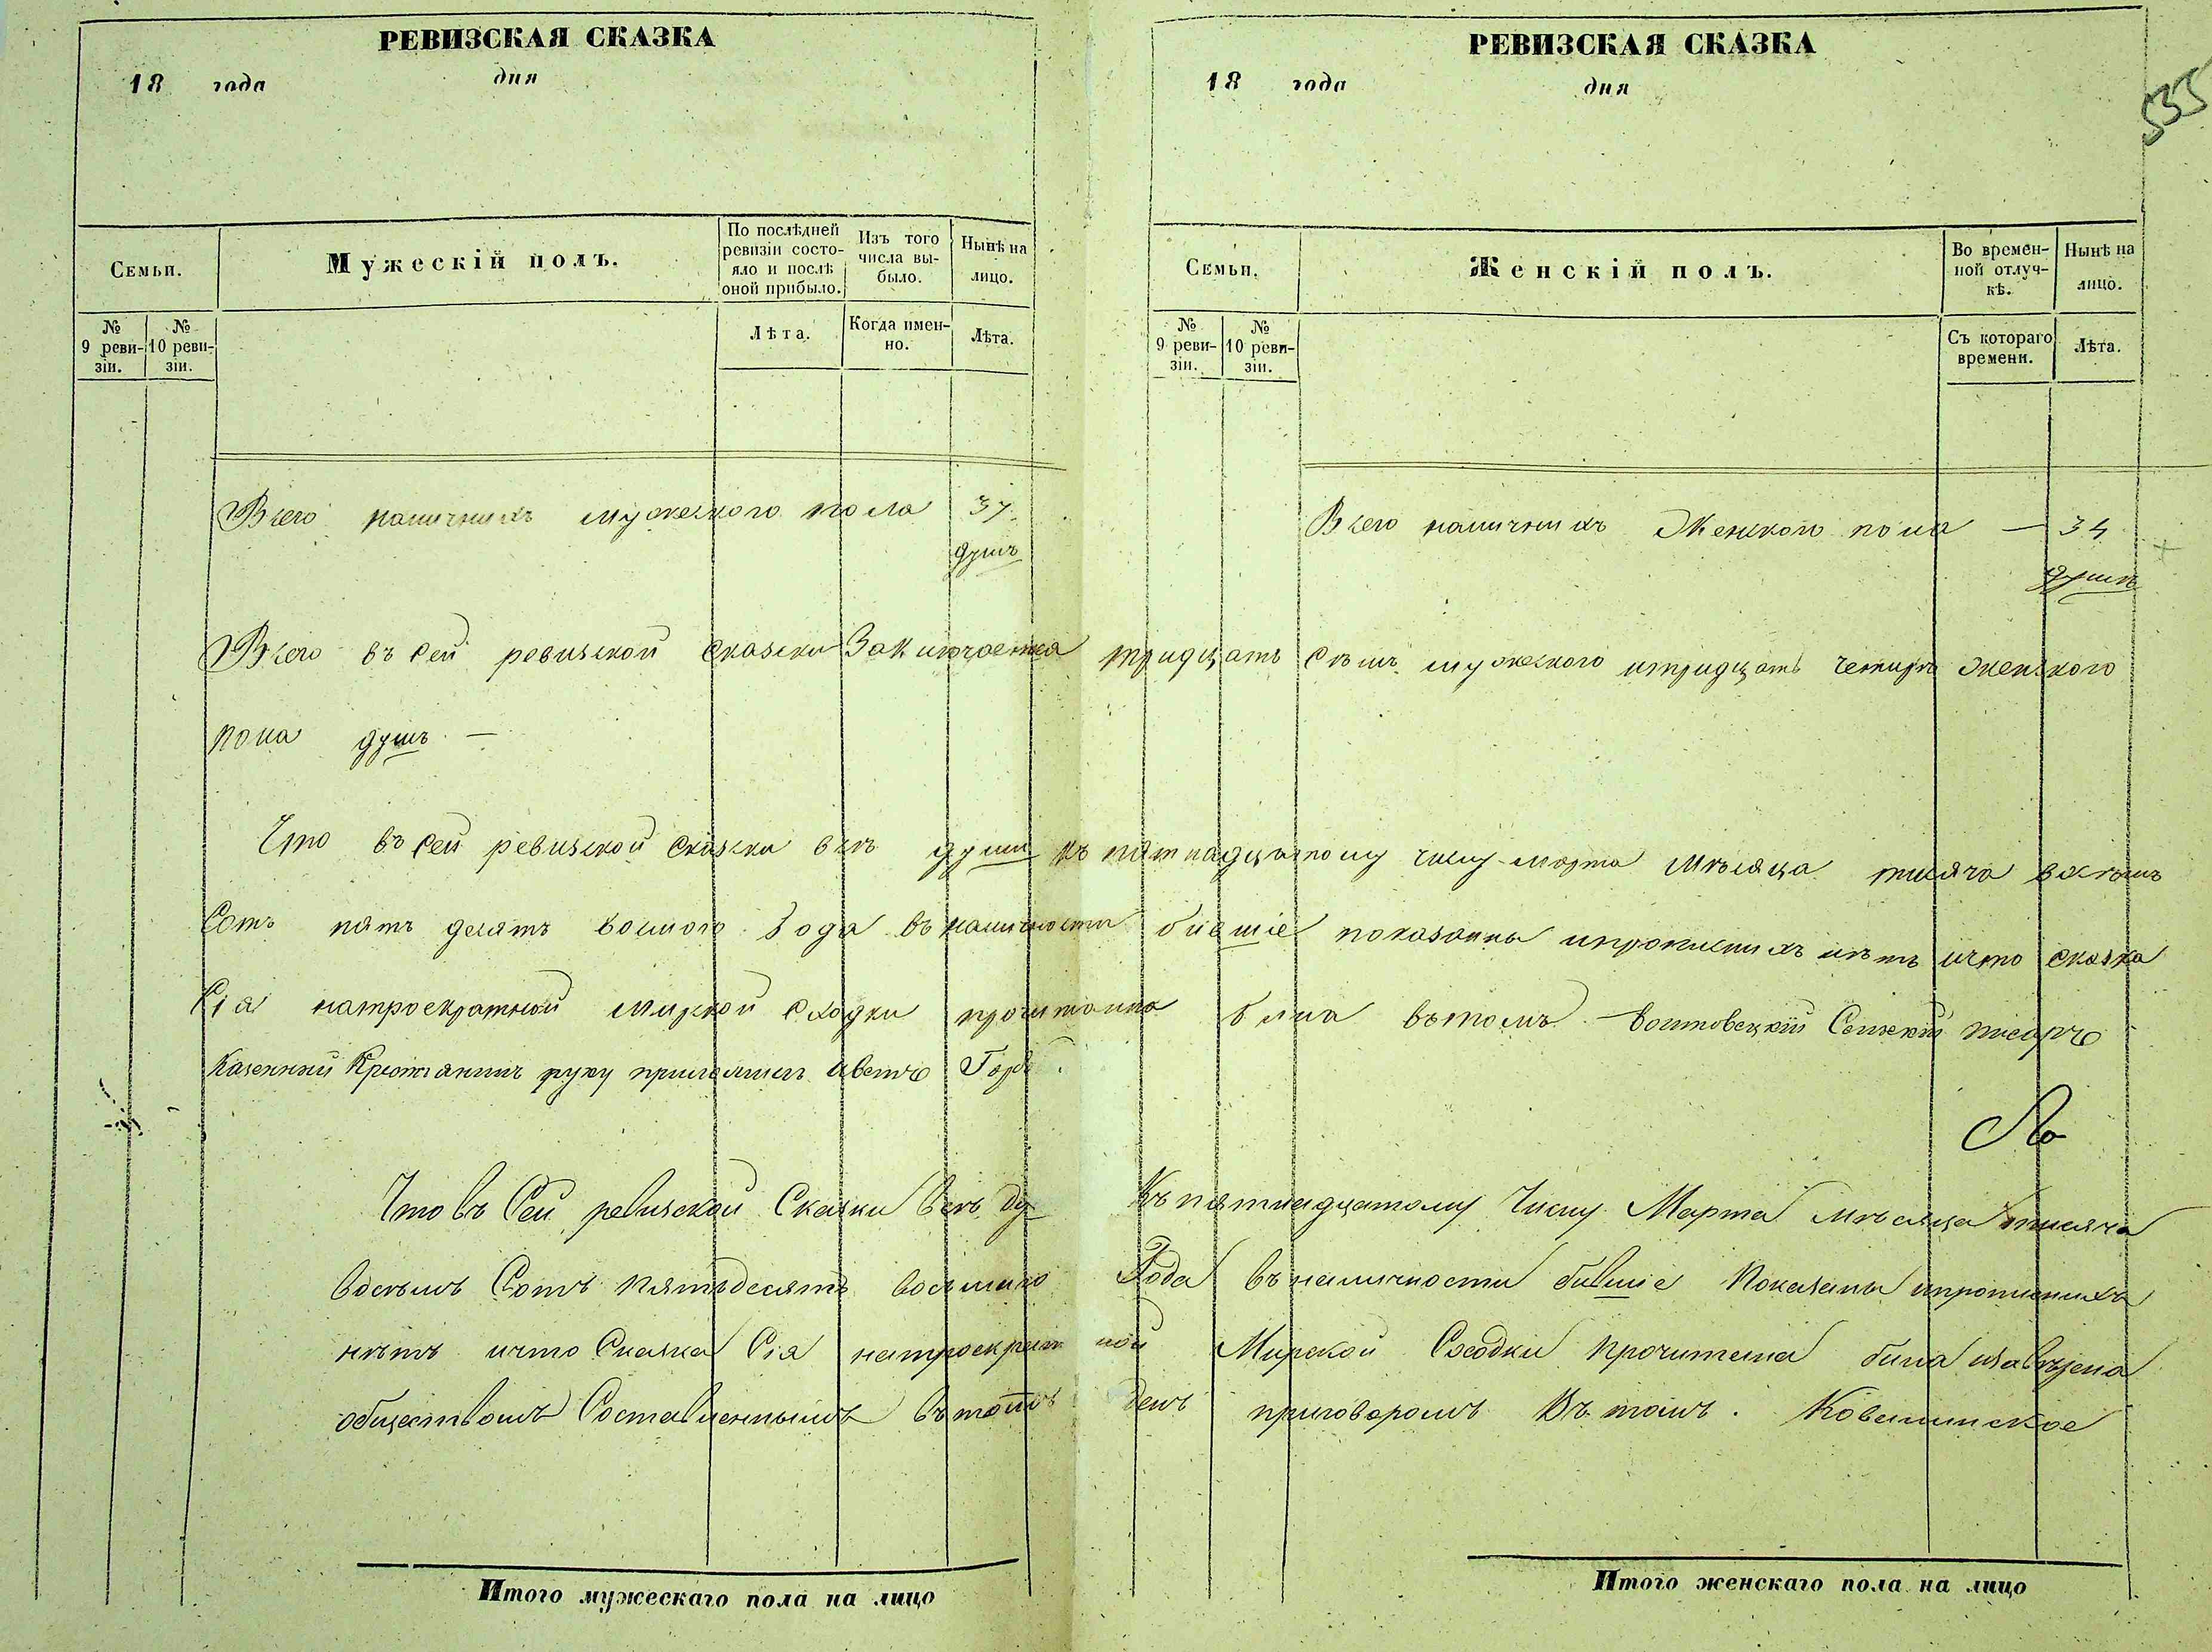 РЕВИЗСКАЯ СКАЗКА
18 года дня
Семьи.
Мужескій полъ.
По послѣдней ревизіи состо-
яло и послѣ оной прибыло.
Изъ того числа вы-
было.
Нынѣ на лицо.
№ 9 реви-
зіи.
№ 10 реви-
зіи.
Лѣта.
Когда имен-
но.
Лѣта.
Всего наличнихъ мужеского пола 37
душъ
РЕВИЗСКАЯ СКАЗКА
18 года дня
535
Семьи.
Женскій полъ.
Во времен-
ной отлуч-
кѣ.
Нынѣ на лицо.
№ 9 реви-
зіи.
№ 10 реви-
зіи.
Съ котораго времени.
Лѣта.
Всего наличнихъ Женского пола — 34
душъ
Всего въ сей ревизской сказки Заключается тридцать сѣмъ мужеского итридцать четири женского
пола душъ —
Что въ сей ревизской сказки всѣ души къ пятнадцятому числу марта мѣсяца тисяча восѣмъ
Сотъ пять десятъ восмого Года въ наличности бившіе показанны ипрописнихъ нѣтъ ичто сказка
Сія натроекратной мирской сходки прочитанна била вътомъ Сельскій писарь
Казенний руку приложилъ
Что въ Сей ревизской Сказки всѣ ду Къ пятнадцатому Числу Марта мѣсяца тисяча
восѣмъ Сотъ пятьдесятъ восьмиго Года въ наличности бившіе Показаны ипрописнихъ
нѣтъ ичто Сказка Сія натроекрат ной Мирской Сходки прочитана била
обществомъ Составленнымъ вътотъ денъ приговоромъ Въ томъ.
Итого мужескаго пола на лицо
Итого женскаго пола на лицо